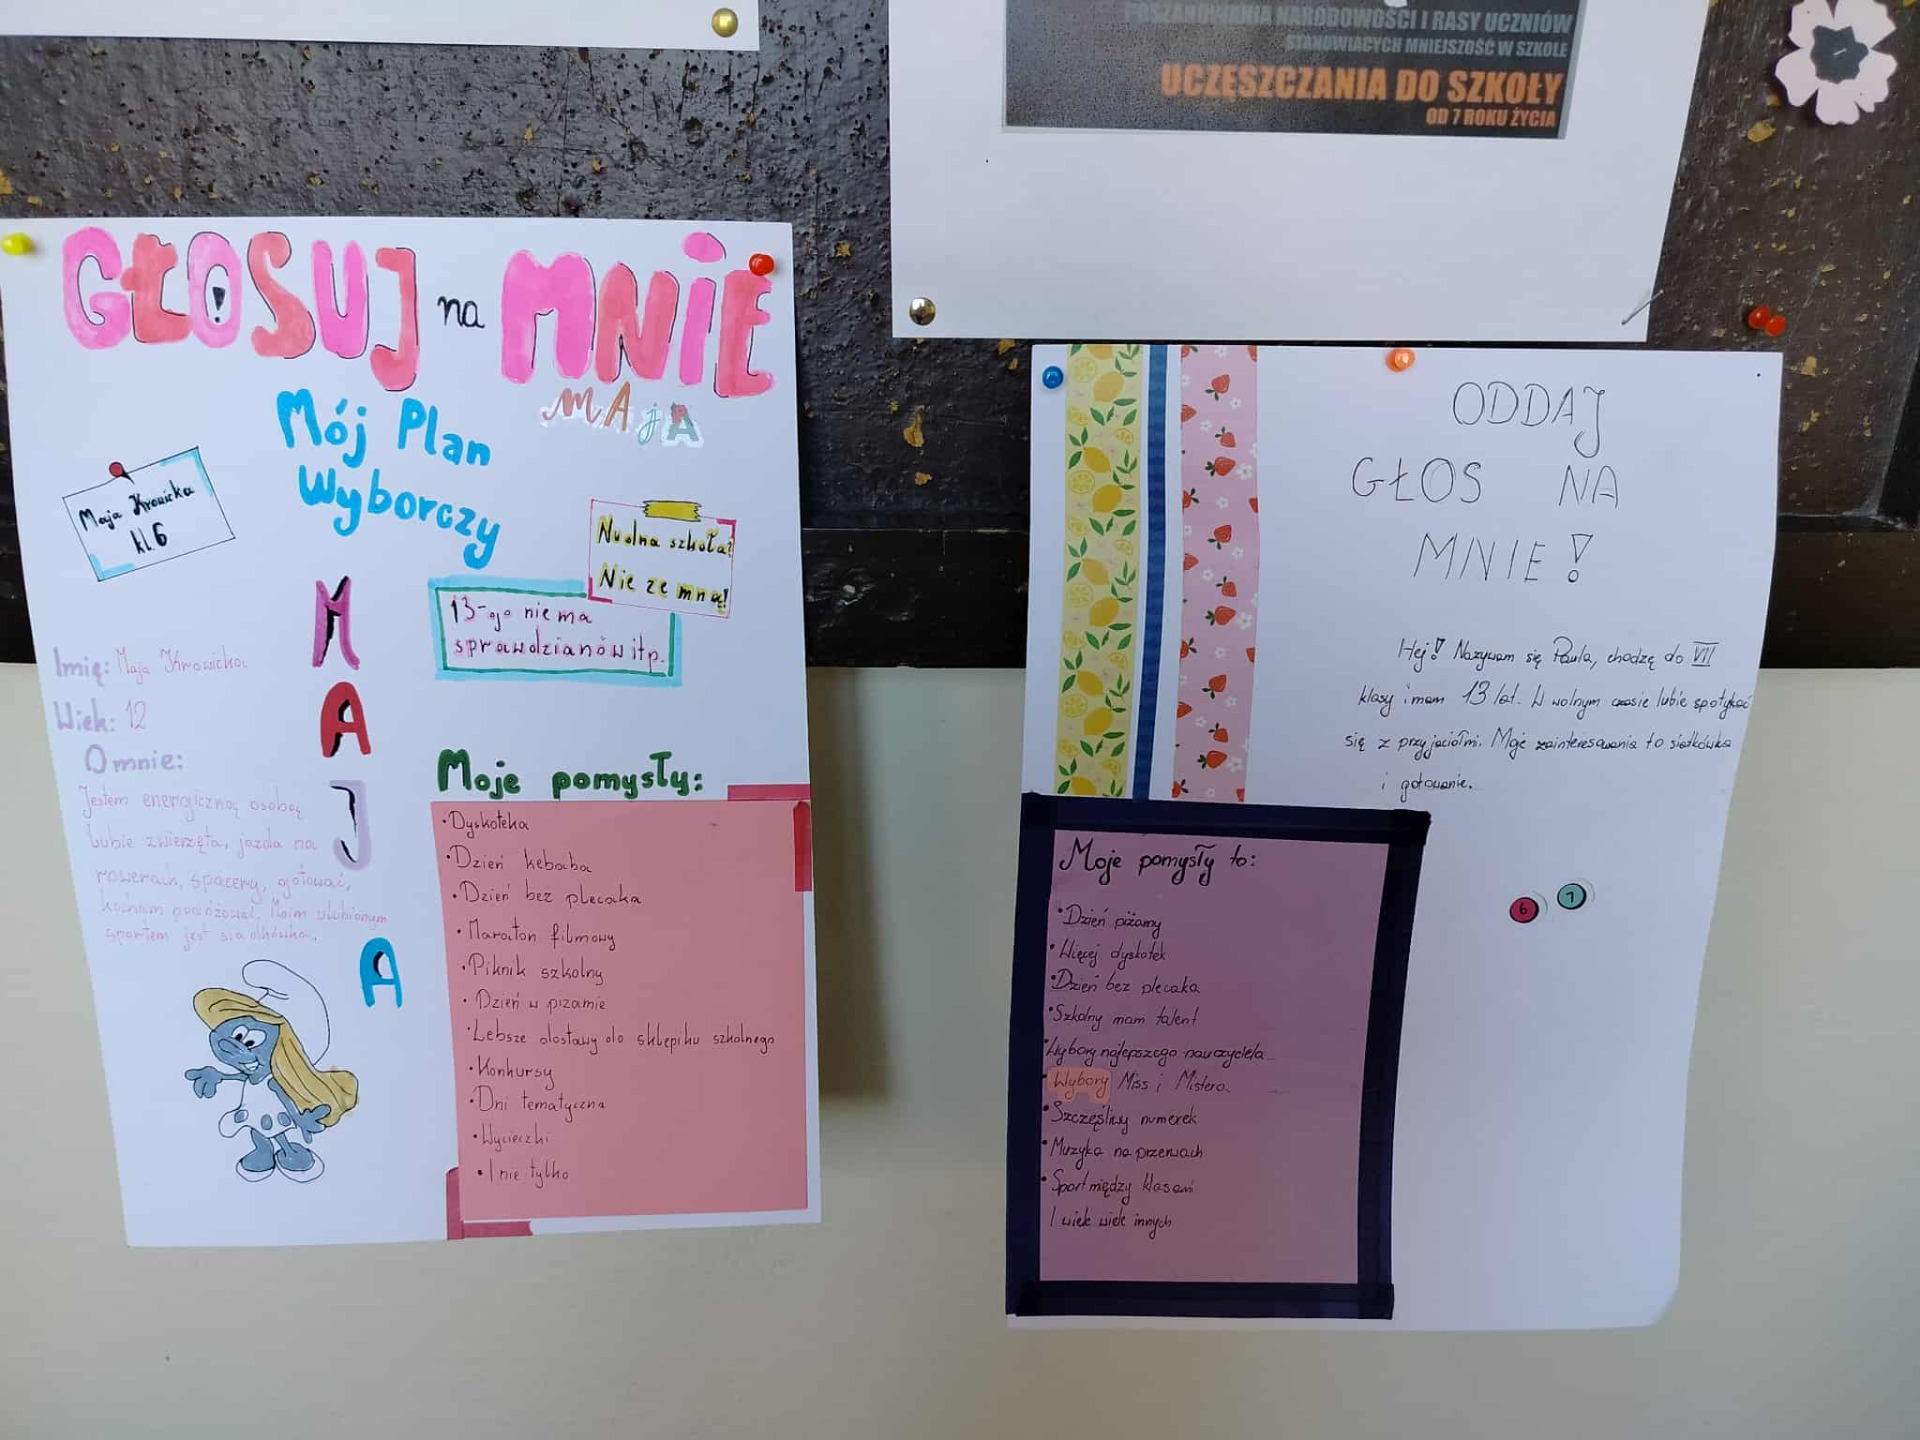 POSZANOWANIA NARODOWOŚCI I RASY UCZNIÓW
STANOWIĄCYCH MNIEJSZOŚĆ W SZKOLE
UCZĘSZCZANIA DO SZKOŁY
OD 7 ROKU ŻYCIA
GŁOSUJ na MNIE
!
MAJA
Mój Plan
Wyborczy
Maja
kl.6
Nudna szkoła?
Nie ze mną!
13-ego nie ma
sprawdzianów itp.
MAJA
Imię: Maja
Wiek: 12
O mnie:
Jestem energiczną osobą
Lubie zwierzęta, jazda na
rowerach, spacery, gotować,
kocham podróżować. Moim ulubionym
sportem jest siadkówka.
Moje pomysły:
• Dyskoteka
• Dzień kebaba
• Dzień bez plecaka
• Maraton filmowy
• Piknik szkolny
• Dzień w pizamie
• Lebsze dostawy do sklepiku szkolnego
• Konkursy
• Dni tematyczna
• Wycieczki
• I nie tylko
ODDAJ
GŁOS NA
MNIE!
Hej! Nazywam się Paula, chodzę do VII
klasy i mam 13 lat. W wolnym czasie lubie spotykać
się z przyjaciółmi. Moje zainteresowania to siatkówka
i gotowanie.
6 7
Moje pomysły to:
• Dzień piżamy
• Więcej dyskotek
• Dzień bez plecaka
• Szkolny mam talent
• Wybory najlepszego nauczyciela
• Wybory Miss i Mistera
• Szczęśliwy numerek
• Muzyka na przerwach
• Sport między klasami
I wiele wiele innych